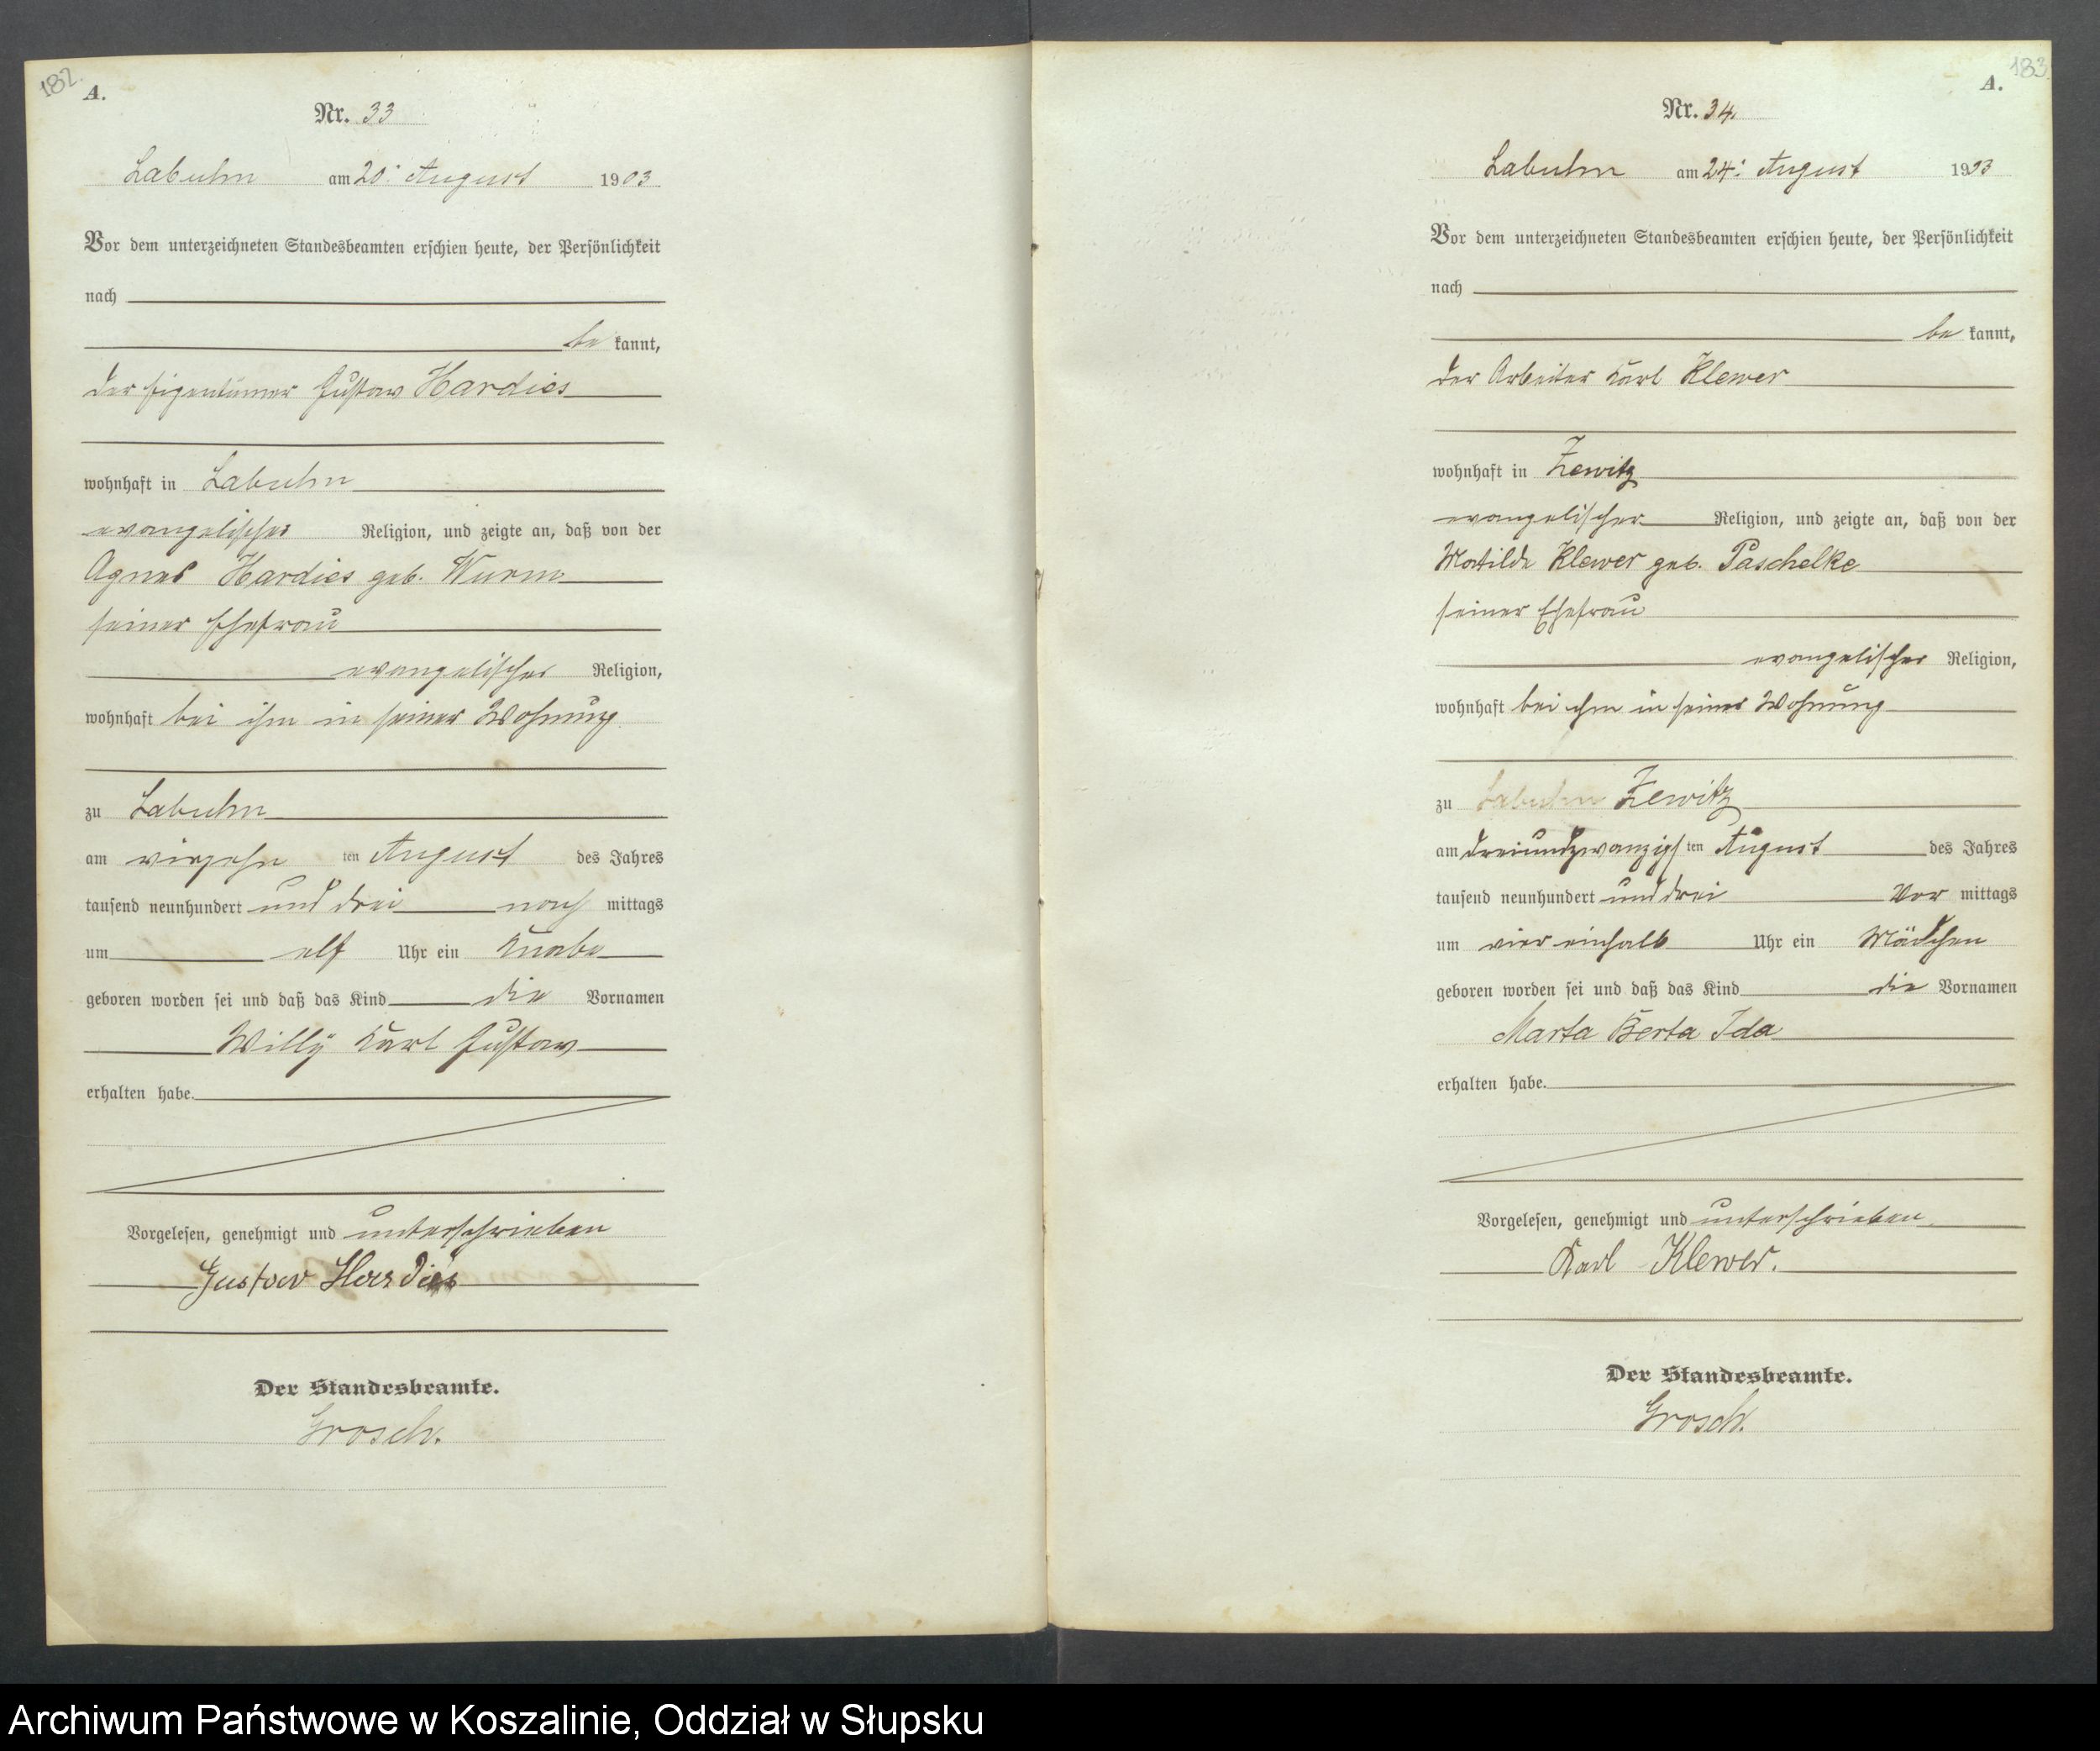 182.
A.
Nr. 33
Labuhn am 20. August 1903
Vor dem unterzeichneten Standesbeamten erschien heute, der Persönlichkeit
nach
be kannt,
der Eigentümer Gustav Hardies
wohnhaft in Labuhn
evangelischer Religion, und zeigte an, daß von der
Agnes Hardies geb. Wurm
seiner Ehefrau
evangelischer Religion,
wohnhaft bei ihm in seiner Wohnung
zu Labuhn
am vierzehn ten August des Jahres
tausend neunhundert und drei nach mittags
um elf Uhr ein Knabe
geboren worden sei und daß das Kind die Vornamen
Willy Karl Gustav
erhalten habe.
Vorgelesen, genehmigt und unterschrieben
Gustav Hardies
Der Standesbeamte.
Grosch.
183
A.
Nr. 34.
Labuhn am 24. August 1903
Vor dem unterzeichneten Standesbeamten erschien heute, der Persönlichkeit
nach
be kannt,
der Arbeiter Karl Klewer
wohnhaft in Zewitz
evangelischer Religion, und zeigte an, daß von der
Matilde Klewer geb. Paschelke
seiner Ehefrau
evangelischer Religion,
wohnhaft bei ihm in seiner Wohnung
zu Labuhn Zewitz
am dreiundzwanzigs ten August des Jahres
tausend neunhundert und drei Vor mittags
um vier einhalb Uhr ein Mädchen
geboren worden sei und daß das Kind die Vornamen
Marta Berta Ida
erhalten habe.
Vorgelesen, genehmigt und unterschrieben
Karl Klewer.
Der Standesbeamte.
Grosch.
Archiwum Państwowe w Koszalinie, Oddział w Słupsku